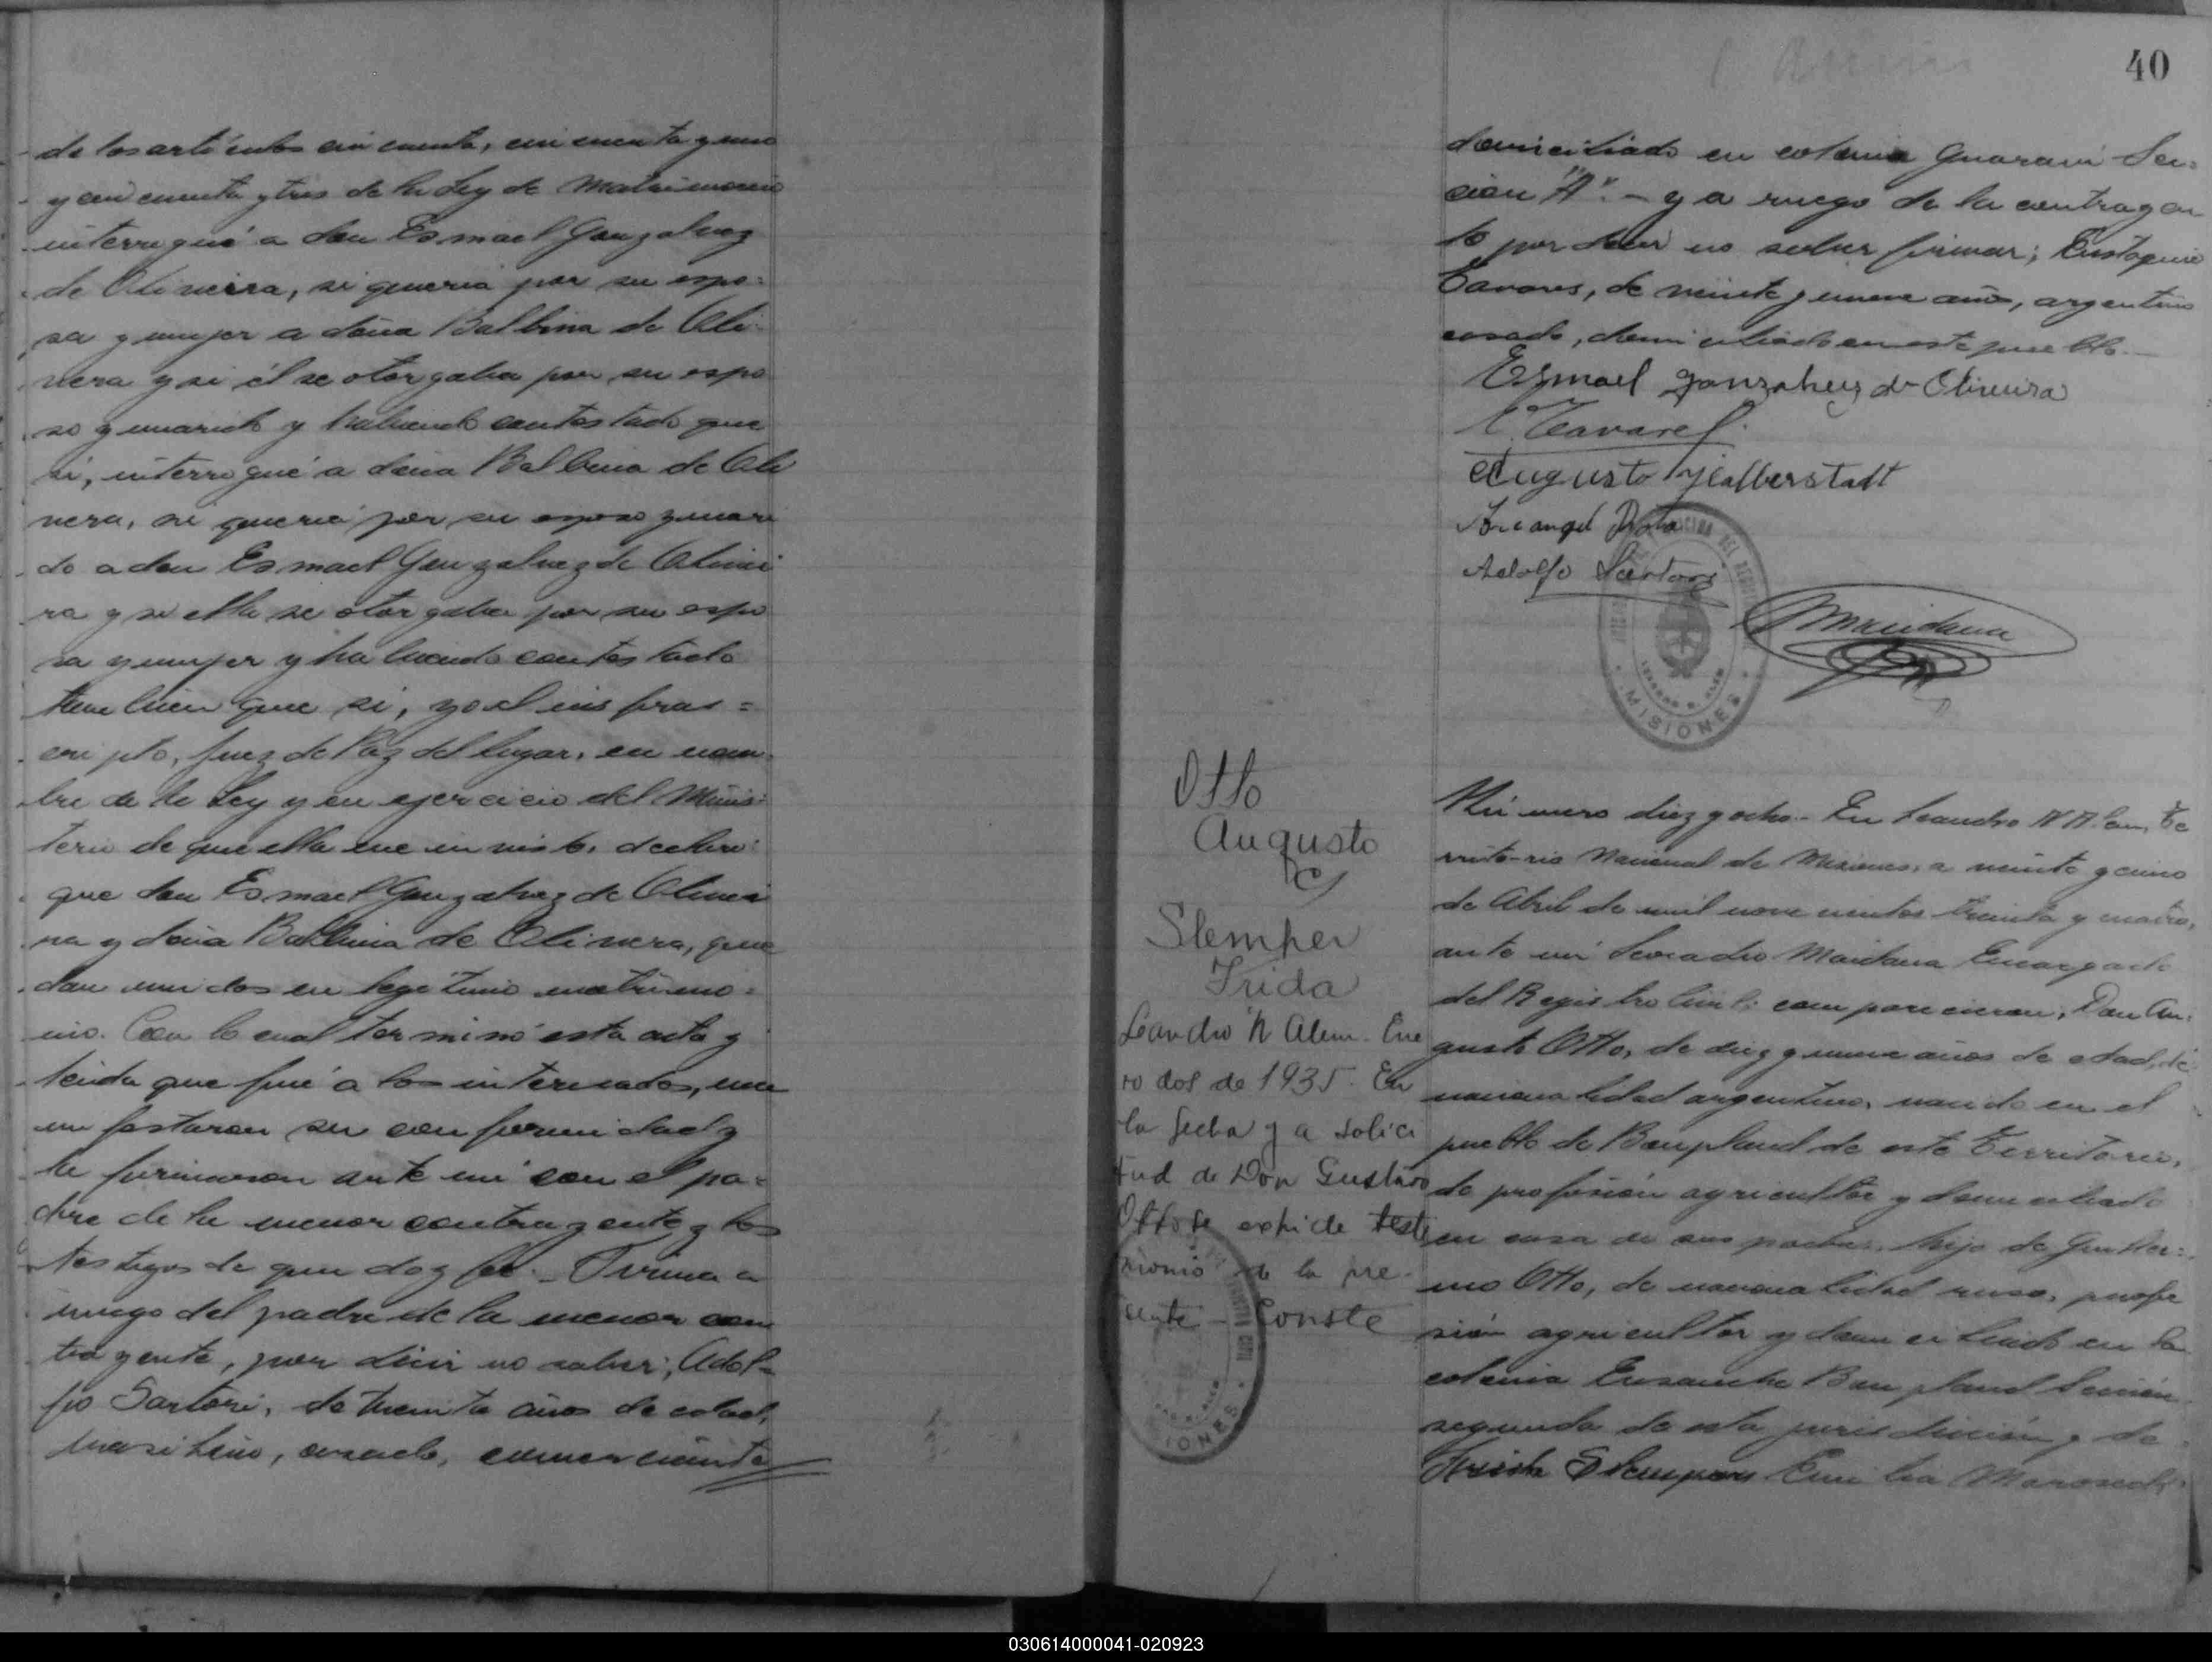 de los artículos cincuenta, cincuenta y uno
y cincuenta y tres de la Ley de Matrimonio
interrogué a don Esmael Gonzalvez
de Oliveira, si queria por su espo=
sa y mujer a doña Balbina de Oli
vera y si él se otorgaba por su espo
so y marido y habiendo contestado que
si, interrogué a doña Balbina de Oli
vera, si queria por su esposo y mari
do a don Esmael Gonzalvez de Olivei
ra y si ella se otorgaba por su espo
sa y mujer y habiendo contestado
tambien que si, yo el infras=
cripto, Juez de Paz del lugar, en nom
bre de la Ley y en ejercicio del Minis=
terio de que ella me inviste, declaro:
que don Esmael Gonzalvez de Olivei
ra y doña Balbina de Olivera, que
dan unidos en legítimo matrimo=
nio. Con lo cual terminó esta acta y
leida que fué a los interesados, ma
nifestaron su conformidad y
la firmaron ante mi con el pa=
dre de la menor contrayente y los
testigos de que doy fé. Firma a
ruego del padre de la menor con
trayente, por decir no saber; Adol=
fo Sartori, de treinta años de edad,
brasileño, casado, comerciante
40
domiciliado en colonia Guaraní Sec
ción "A".- y a ruego de la contrayen
te por decir no saber firmar; Eustaquio
Tavares, de veinte y nueve años, argentino
casado, domiciliado en este pueblo.
Esmael Gonzalvez de Oliveira
E. Tavares
Augusto Halberstadt
Arcangel
Adolfo Sartori
Maidana
MISIONES
Otto
Augusto
c/
Stemper
Frida
Leandro N Alem. Ene
ro dos de 1935. En
la fecha y a solici
tud de Don Gustavo
Otto se expide testi
monio de la pre-
sente - Conste
REGISTRO CIVIL
MISIONES
Número diez y ocho.- En Leandro N Alem, Te
rrito-rio Nacional de Misiones, a veinte y cinco
de Abril de mil novecientos treinta y cuatro,
ante mi Leocadio Maidana Encargado
del Registro Civil: comparecieron; Don Au=
gusto Otto, de diez y nueve años de edad, de
nacionalidad argentino, nacido en el
pueblo de Bonpland de este Territorio,
de profesión agricultor y domiciliado
en casa de sus padres, hijo de Guiller=
mo Otto, de nacionalidad ruso, profe
sión agricultor y domiciliado en la
colonia Ensanche Bonpland Sección
segunda de esta jurisdicción y de
Frida Stemper Emilia
030614000041-020923